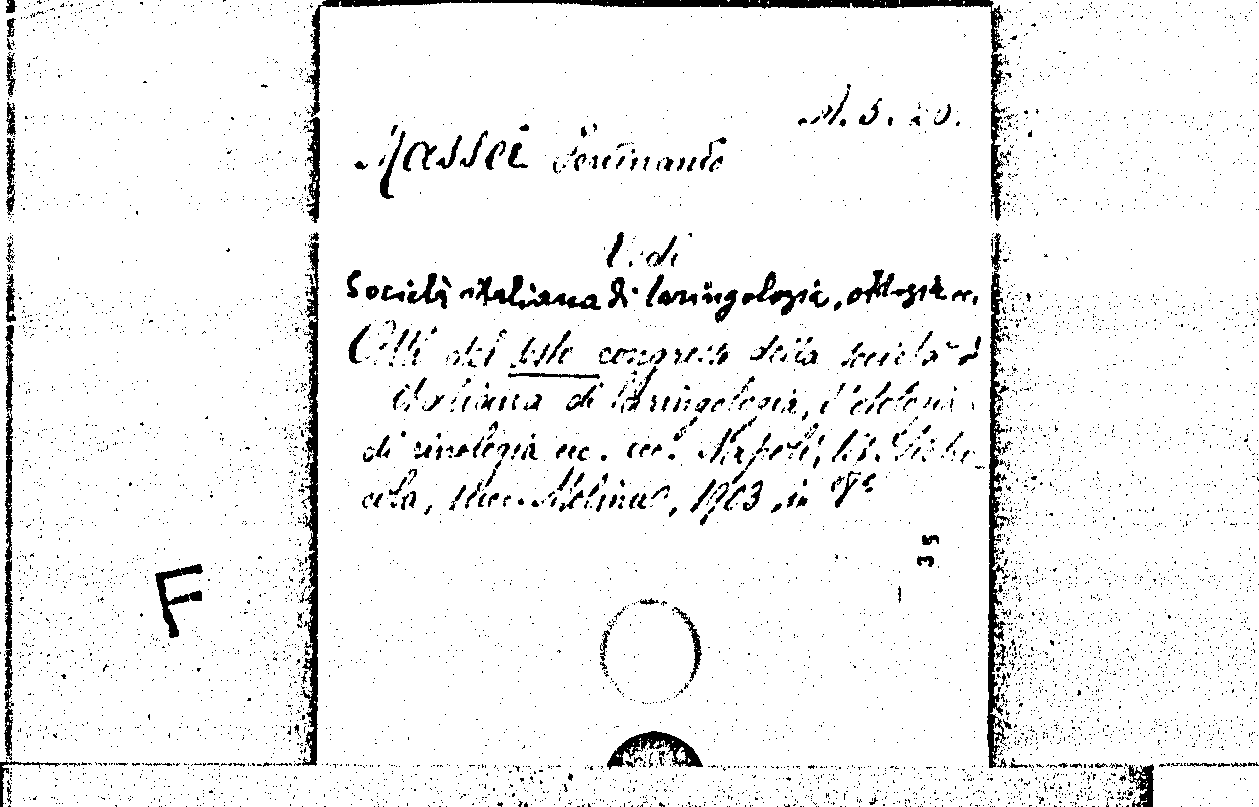 N. 5. 20.
Massei Ferdinando
Vedi
Società italiana di laringologia, otologia
Atti del sesto congresso della società
italiana di laringologia, d'otologia
di rinologia ecc. ecc. Napoli, 
cola, succ. Molina, 1903, in 8°
35
F